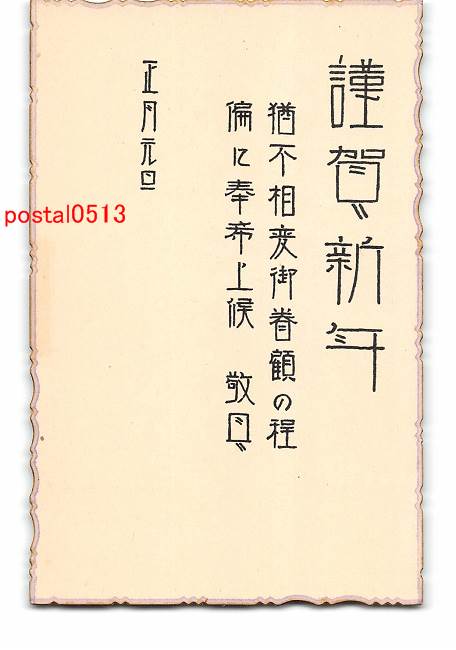 謹賀新年
猶不相変御眷顧の程
偏に奉希上候 敬具
正月元旦
postal0513